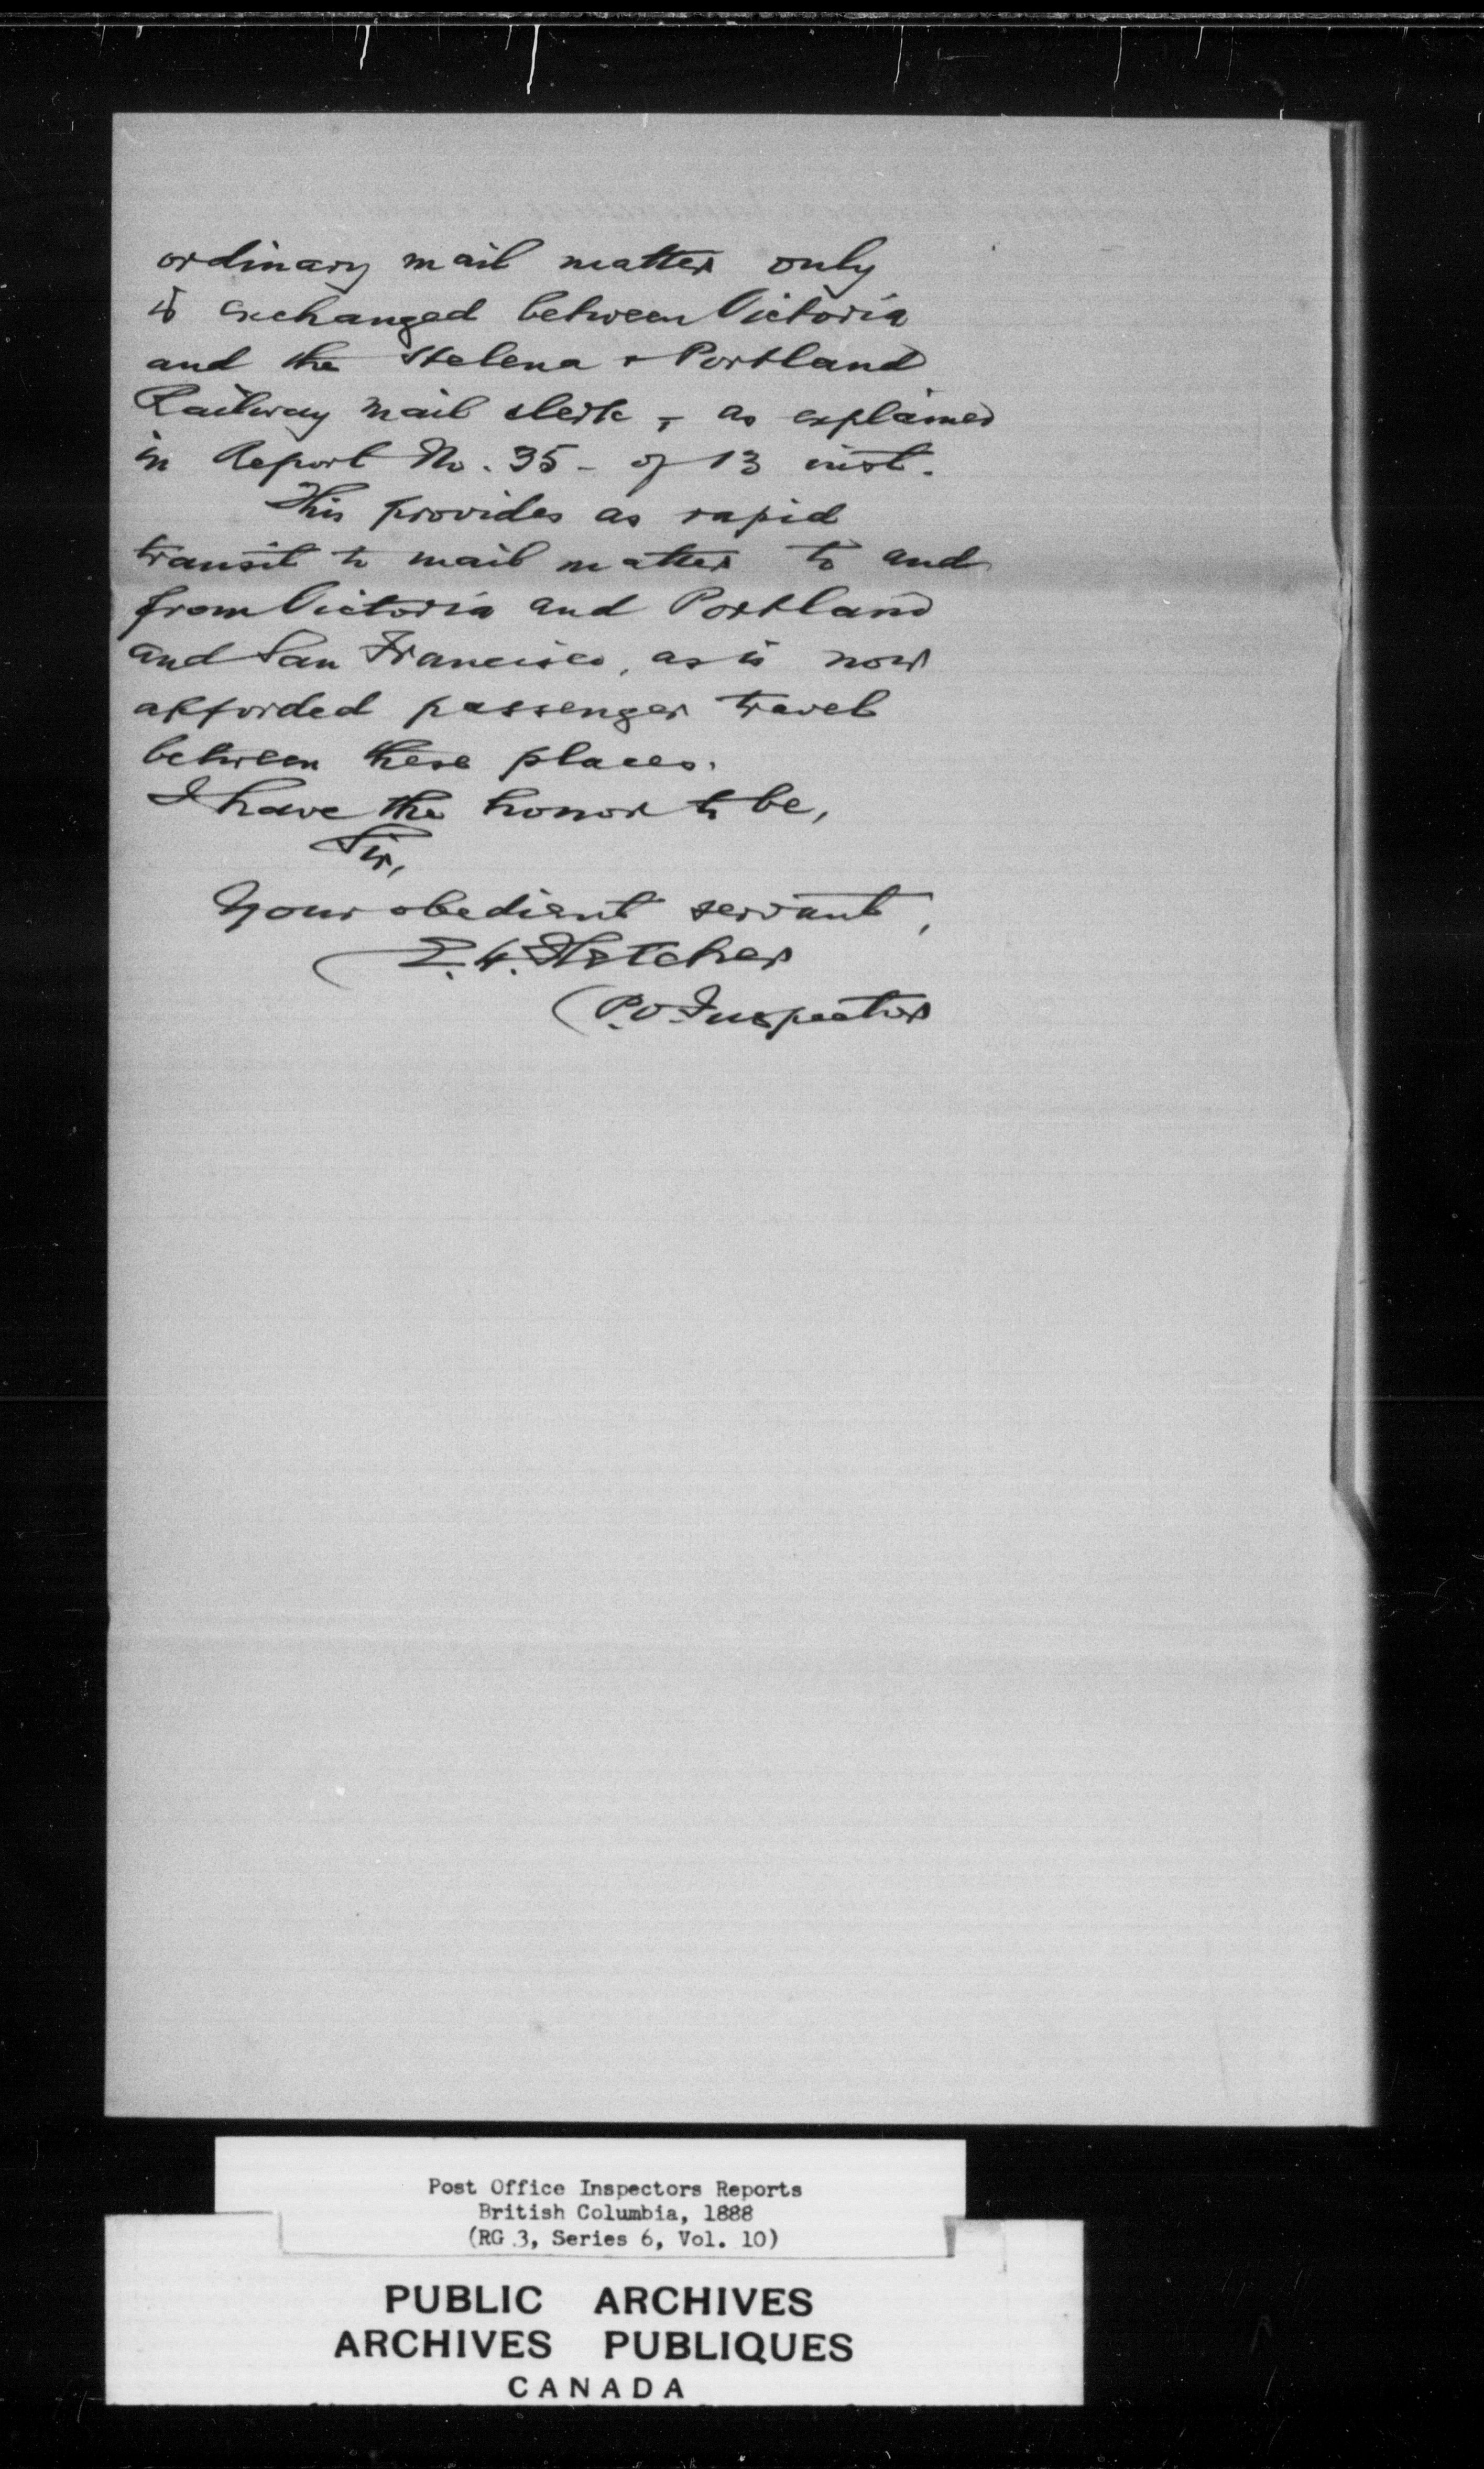 ordinary mail matter only
is exchanged between Victoria
and the Helena & Portland
Railway Mail Clerk, as explained
in Report No. 35 - of 13 inst.
This provides as rapid
transit to mail matter to and
from Victoria and Portland
and San Francisco, as is now
afforded passenger travel
between these places.
I have the honor to be,
Sir,
Your obedient servant,
E. H. Fletcher
P.O. Inspector
Post Office Inspectors Reports
British Columbia, 1888
(RG 3, Series 6, Vol. 10)
PUBLIC ARCHIVES
ARCHIVES PUBLIQUES
CANADA